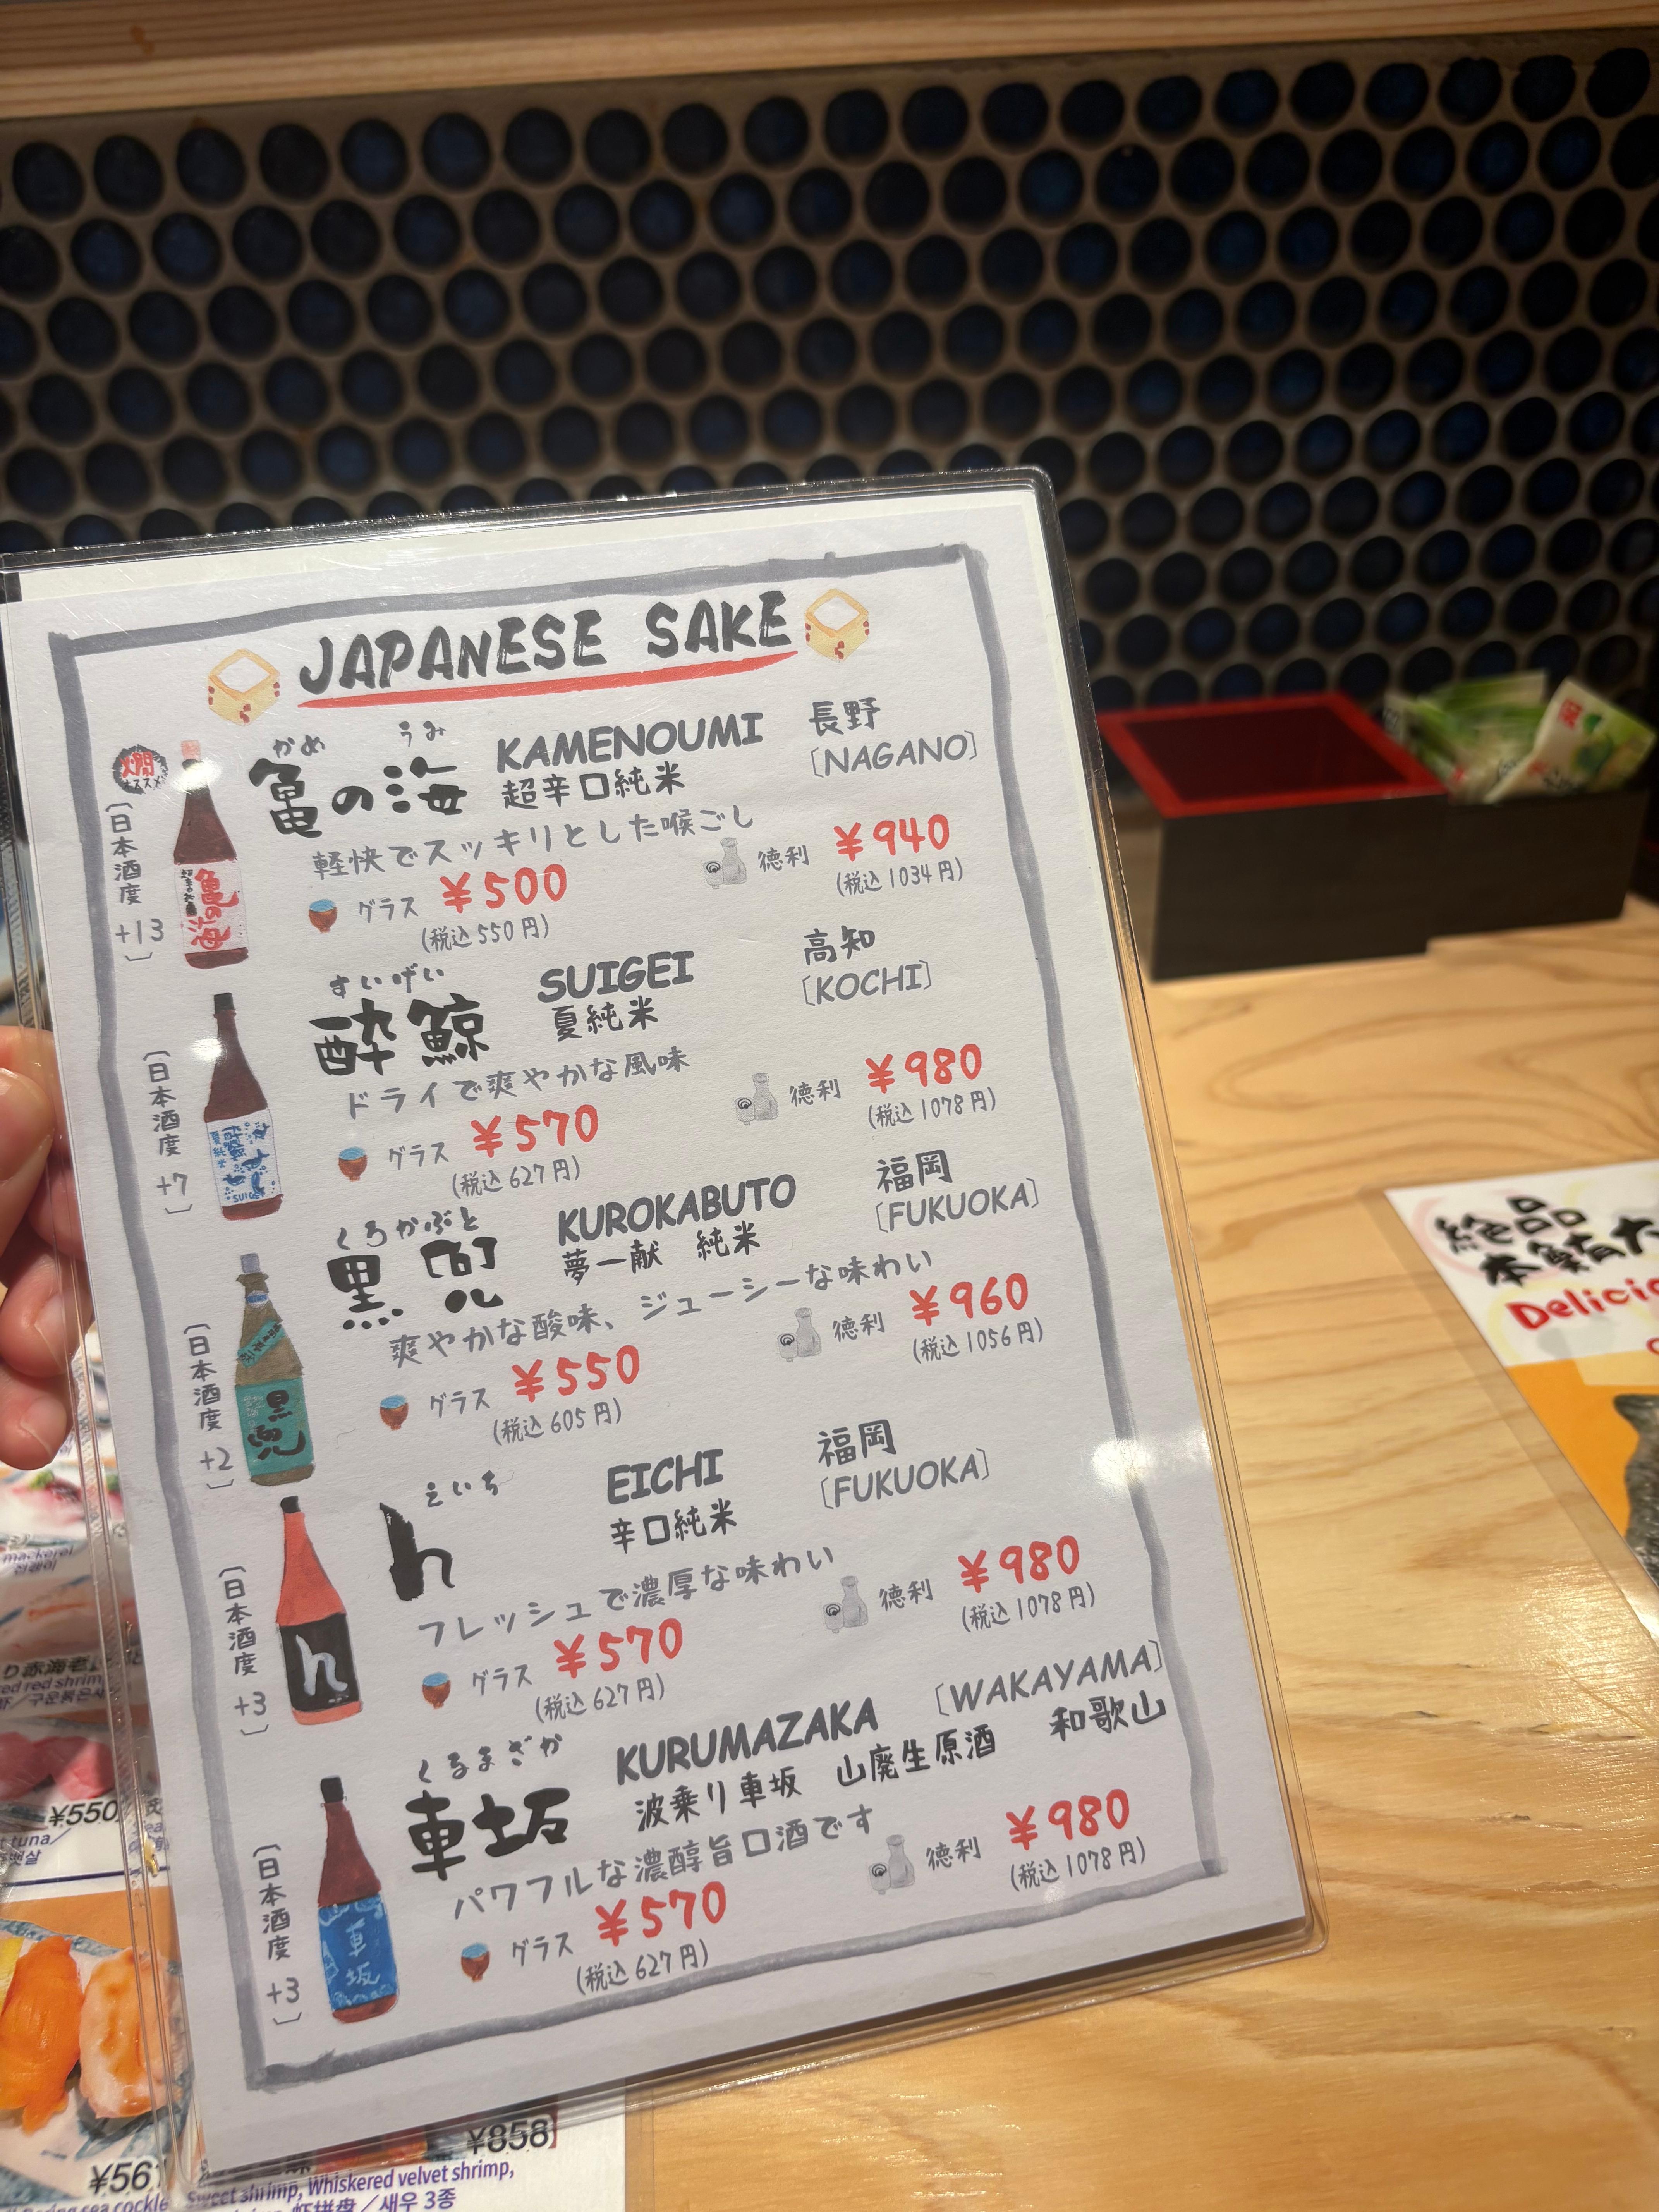 JAPANESE SAKE
燗
オススメ
かめ うみ
亀の海
KAMENOUMI
超辛口純米
長野
〔NAGANO〕
軽快でスッキリとした喉ごし
グラス ¥500
(税込550円)
徳利 ¥940
(税込1034円)
〔日本酒度 +13〕
超辛口純米
亀の海
すいげい
酔鯨
SUIGEI
夏純米
高知
〔KOCHI〕
ドライで爽やかな風味
グラス ¥570
(税込627円)
徳利 ¥980
(税込1078円)
〔日本酒度 +7〕
SUIGEI
くろかぶと
黒兜
KUROKABUTO
夢一献 純米
福岡
〔FUKUOKA〕
爽やかな酸味、ジューシーな味わい
グラス ¥550
(税込605円)
徳利 ¥960
(税込1056円)
〔日本酒度 +2〕
黒兜
えいち
h
EICHI
辛口純米
福岡
〔FUKUOKA〕
フレッシュで濃厚な味わい
グラス ¥570
(税込627円)
徳利 ¥980
(税込1078円)
〔日本酒度 +3〕
h
くるまざか
車坂
KURUMAZAKA
波乗り車坂 山廃生原酒
〔WAKAYAMA〕
和歌山
パワフルな濃醇旨口酒です
グラス ¥570
(税込627円)
徳利 ¥980
(税込1078円)
〔日本酒度 +3〕
車坂
絶品
本鮪大
Delicio
mackerel
り赤海老
red shrim
¥550
tuna/
뱃살
¥858
¥561
Sweet shrimp, Whiskered velvet shrimp,
새우 3종
sea cockle